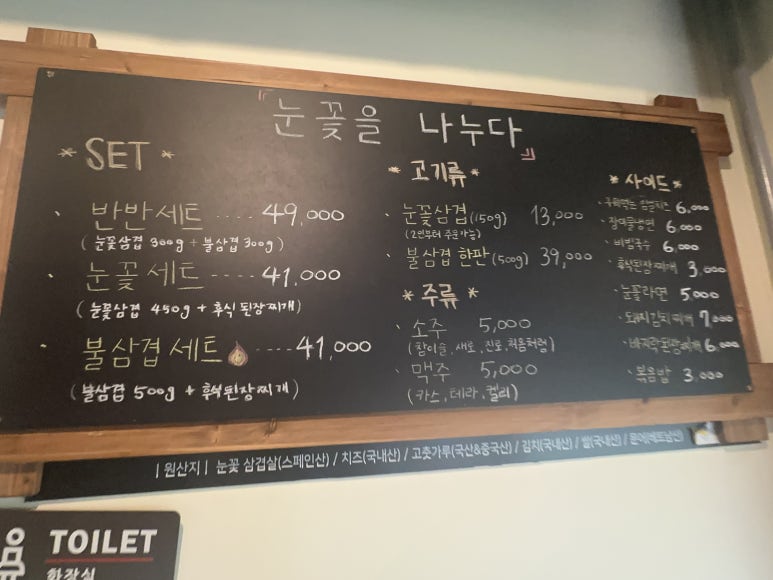 『눈꽃을 나누다』
* SET *
· 반반세트 ···· 49,000
(눈꽃삼겹 300g + 불삼겹 300g)
· 눈꽃세트 ···· 41,000
(눈꽃삼겹 450g + 후식된장찌개)
· 불삼겹세트 ···· 41,000
(불삼겹 500g + 후식된장찌개)
* 고기류 *
· 눈꽃삼겹(150g) 13,000
(2인부터 주문가능)
· 불삼겹 한판(500g) 39,000
* 주류 *
· 소주 5,000
(참이슬, 새로, 진로, 처음처럼)
· 맥주 5,000
(카스, 테라, 켈리)
* 사이드 *
· 6,000
· 6,000
· 비빔국수 6,000
· 후식된장찌개 3,000
· 눈꽃라면 5,000
· 돼지김치찌개 7,000
· 바지락된장찌개 6,000
· 볶음밥 3,000
| 원산지 | 눈꽃 삼겹살(스페인산) / 치즈(국내산) / 고춧가루(국산&중국산) / 김치(국내산) / 쌀(국내산) / 문어(베트남산)
TOILET
화장실